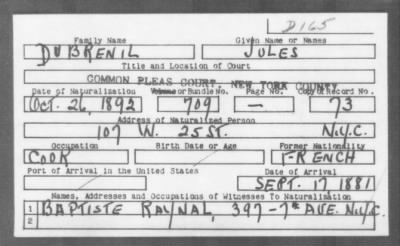 D165
Family Name Given Name or Names
DUBRENIL JULES
Title and Location of Court
COMMON PLEAS COURT, NEW YORK COUNTY
Date of Naturalization Volume or Bundle No. Page No. Copy of Record No.
OCT. 26, 1892 709 — 73
Address of Naturalized Person
107 W. 25 ST. N.Y.C.
Occupation Birth Date or Age Former Nationality
COOK FRENCH
Port of Arrival in the United States Date of Arrival
SEPT. 17 1881
Names, Addresses and Occupations of Witnesses To Naturalization
1 BAPTISTE RAYNAL, 397-7th AVE. N.Y.C.
2